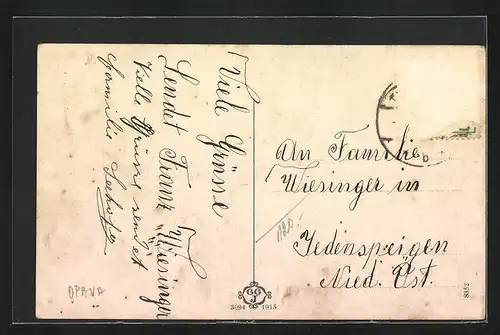 Viele Grüsse
Sendet Franz Wiesinger
Viele Grüsse sendet
Familie
An Familie
Wiesinger in
Jedenspeigen
Nied. Öst.
120.-
OPAVA
3094 1915
8352